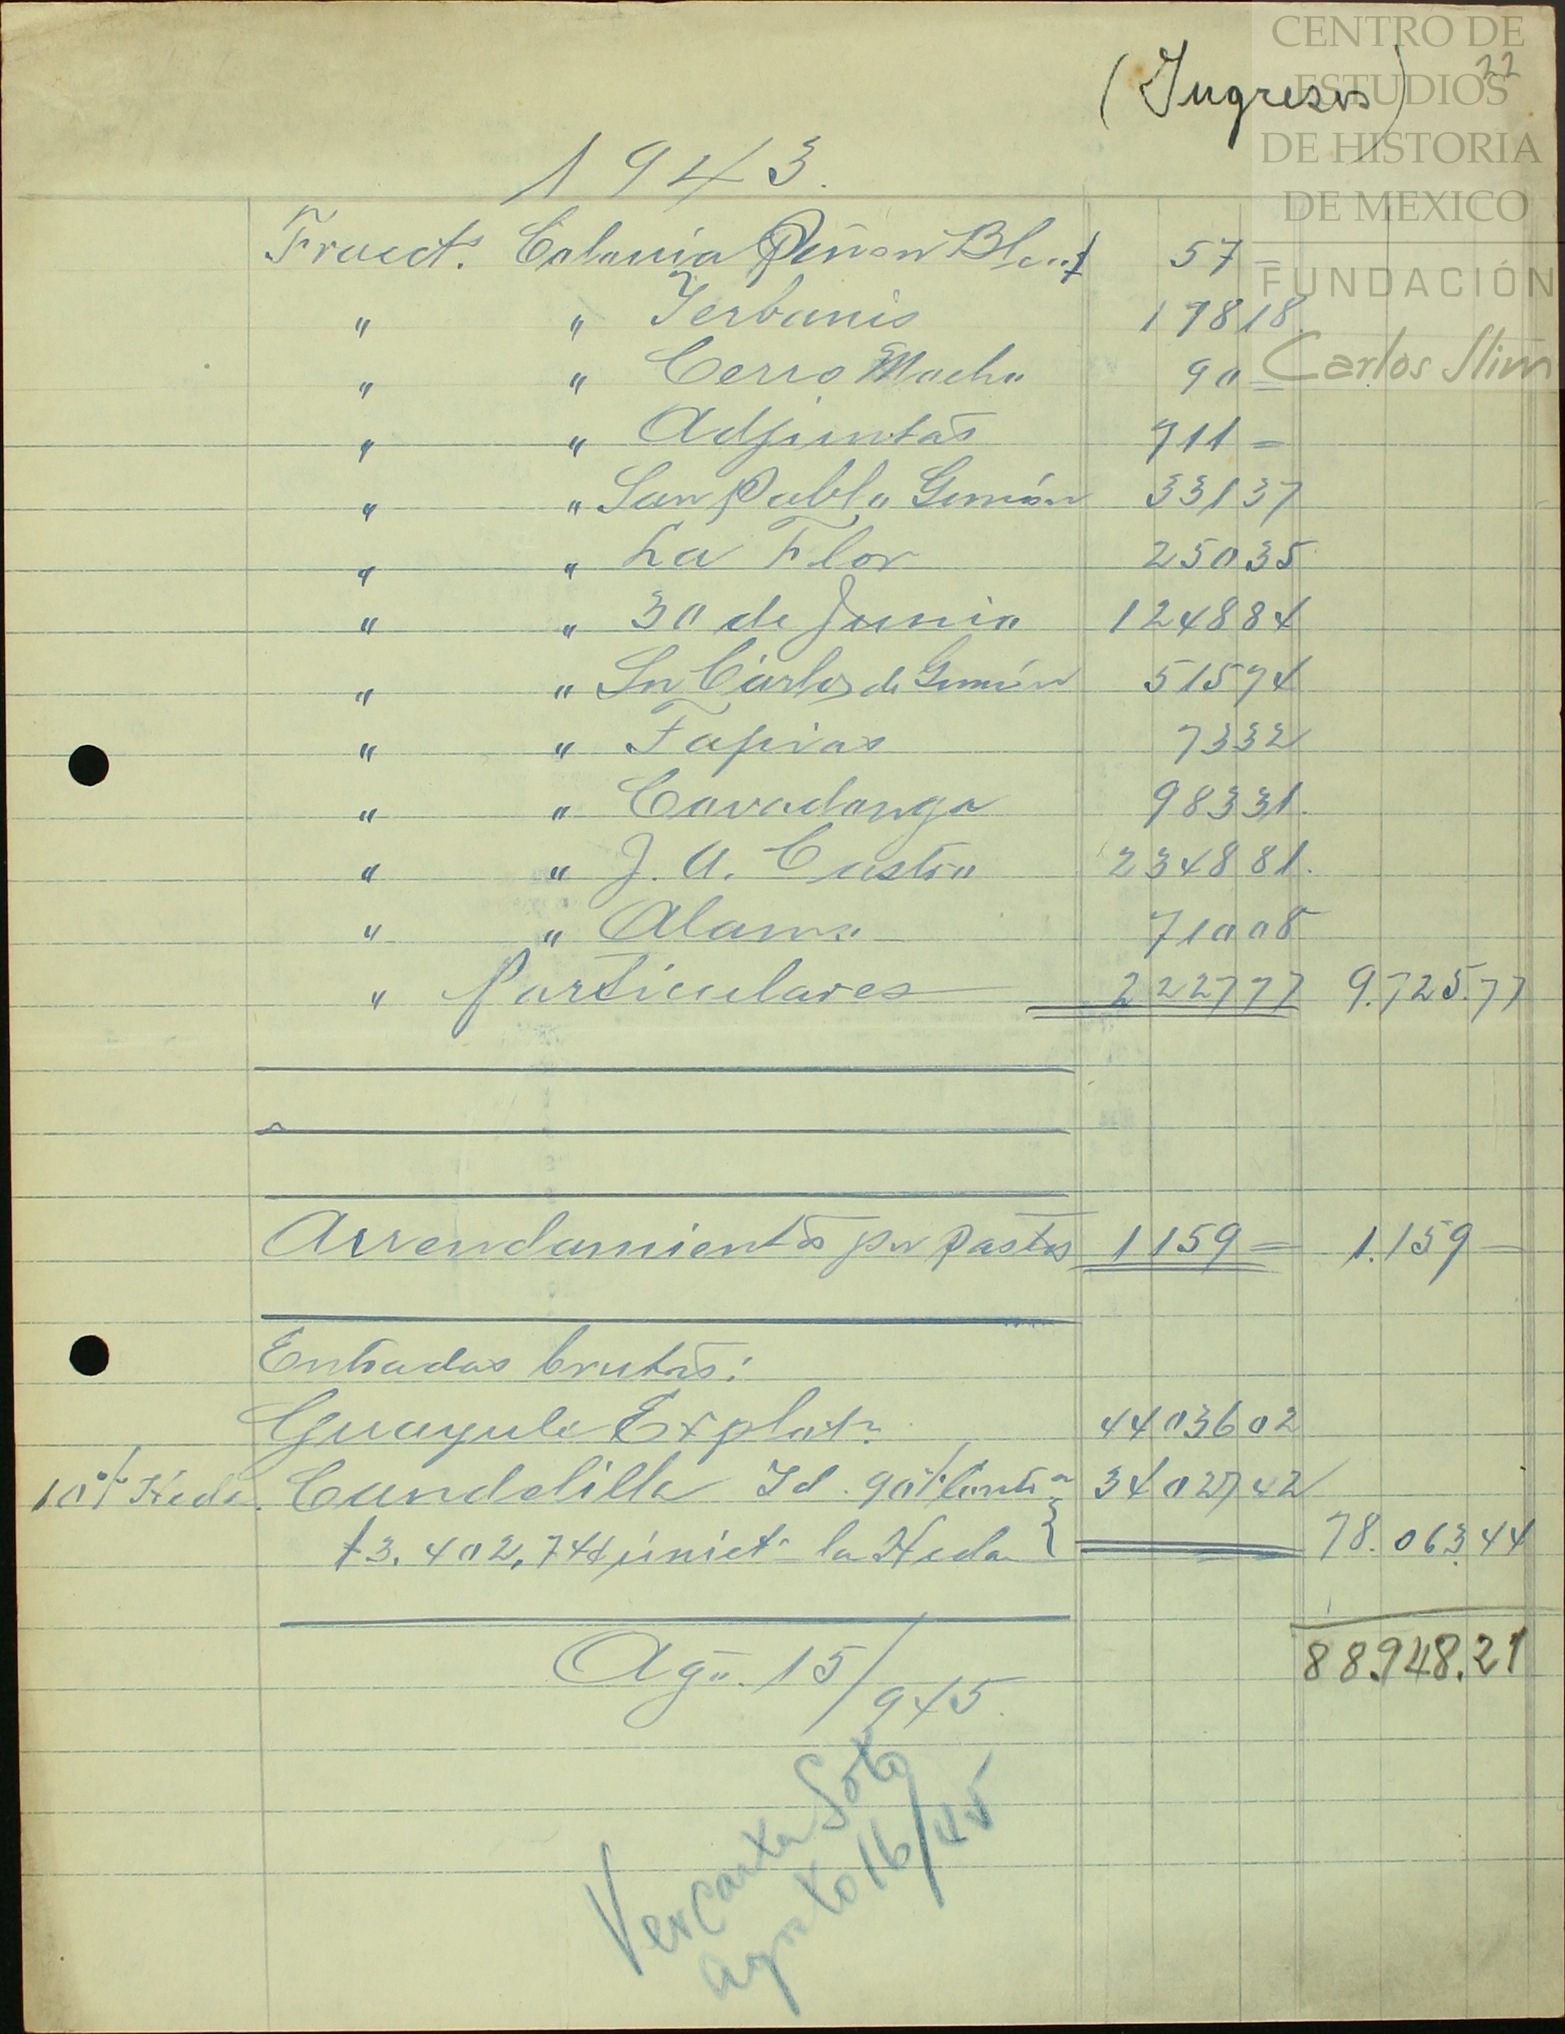 CENTRO DE
ESTUDIOS
DE HISTORIA
DE MEXICO
FUNDACIÓN
Carlos Slim
22
(Ingresos)
1943.
Fracct. Colonia Peñon Blco $ 57 =
" " Yerbanis 19818.
" " Cerro Mocho 90 =
" " Adjuntas 911 =
" " San Pablo Gumón 33137
" " La Flor 25035
" " 30 de Junio 124884
" " Sn Carlos de Gumón 51594
" " Tapias 7332
" " Covadonga 98331.
" " J. A. Castro 234881.
" " Alamo 71008
" Particulares 222777 9.725.77
Arrendamientos por pastos 1159 = 1.159 =
Entradas brutas:
Guayule Explotn. 4403602
10% Heda. Candelilla Id. 90% 3402742
$3.402,74 la Heda 78.063.44
88.948.21
Ago. 15/945.
Ver Carta Soto
agosto 16/45